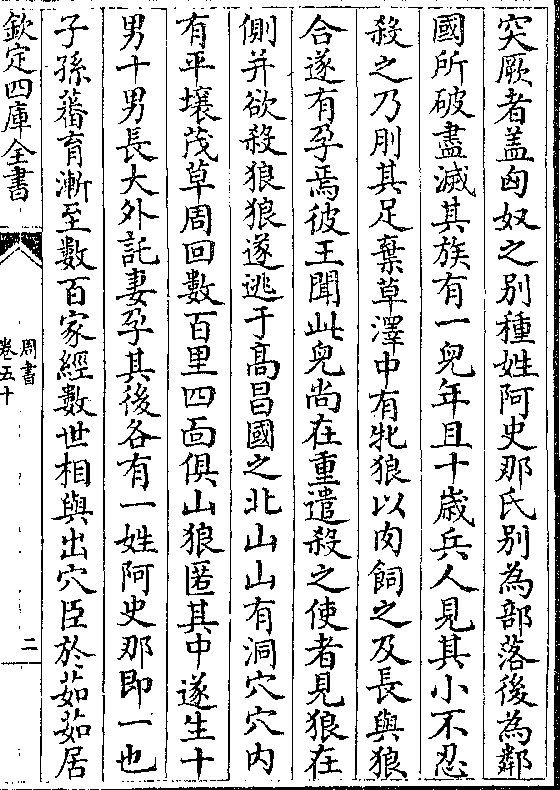 突厥者盖匈奴之别種姓阿史那氏别為部落後為鄰
國所破盡滅其族有一兒年且十歲兵人見其小不忍
殺之乃刖其足棄草澤中有牝狼以肉飼之及長與狼
合遂有孕焉彼王聞此兒尚在重遣殺之使者見狼在
側并欲殺狼狼遂逃于髙昌國之北山山有洞穴穴内
有平壤茂草周回數百里四面俱山狼匿其中遂生十
男十男長大外託妻孕其後各有一姓阿史那即一也
子孫蕃育漸至數百家經數世相與出穴臣於茹茹居
欽定四庫全書
周書
卷五十
二